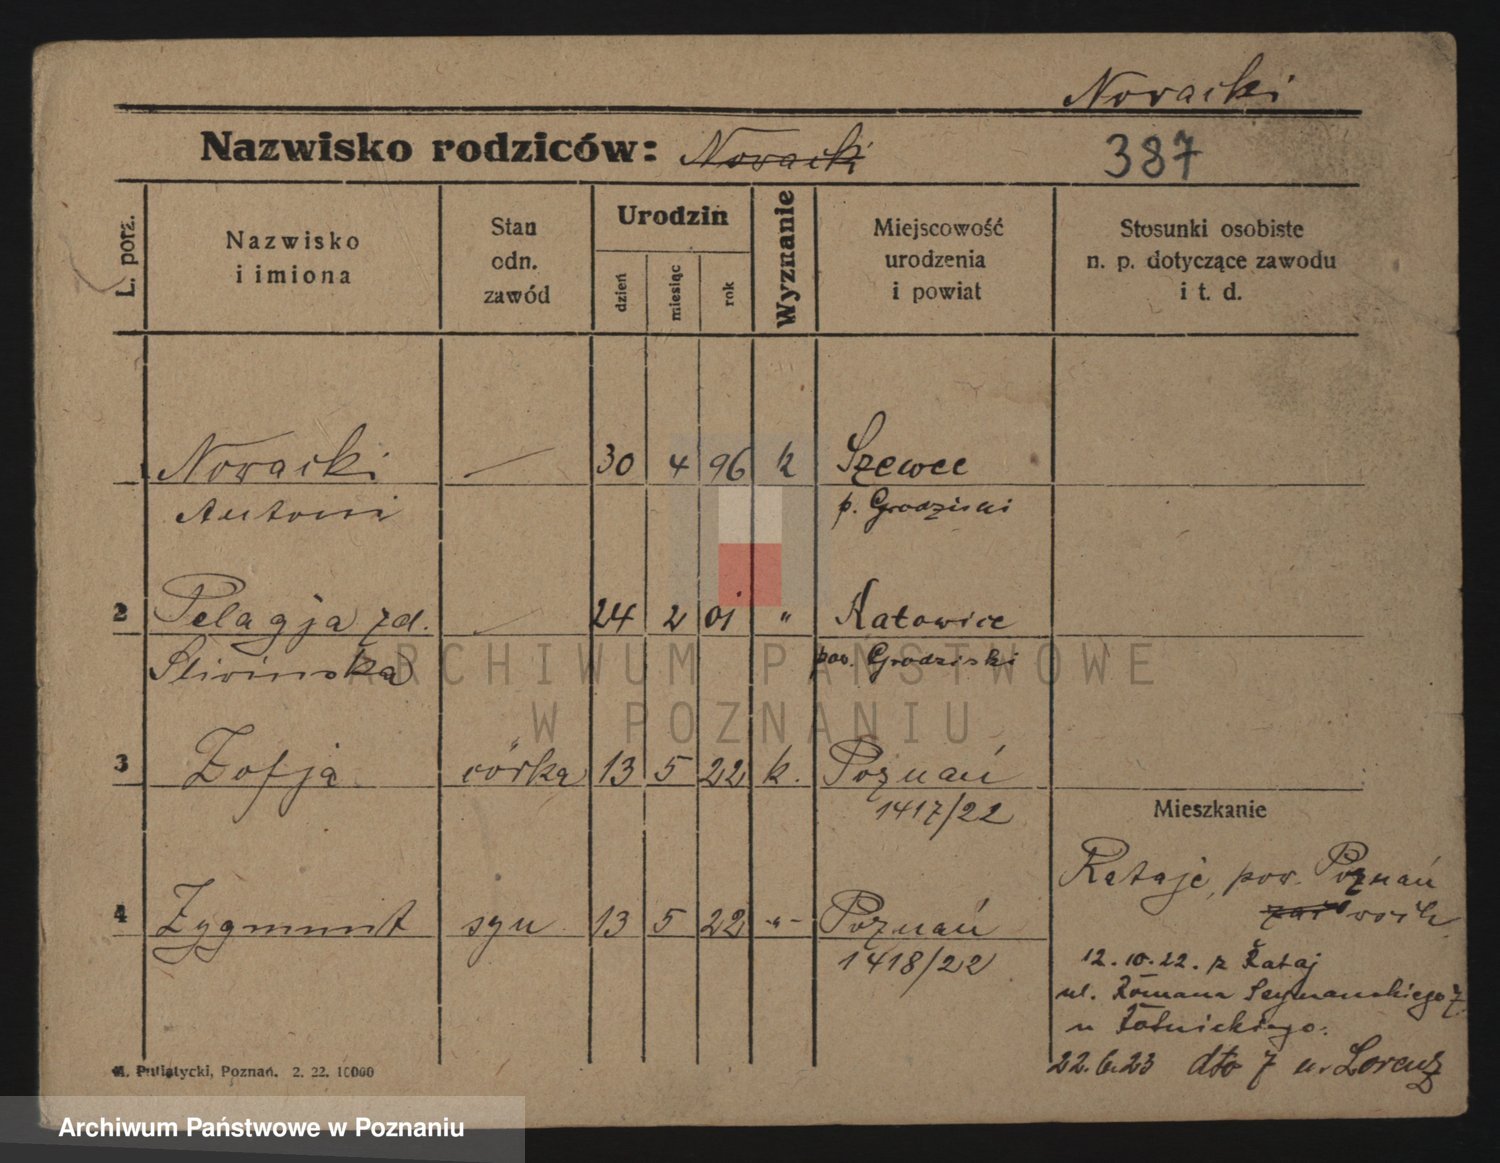 Nowacki
Nazwisko rodziców: Nowacki
387
L. porz.
Nazwisko
i imiona
Stan
odn.
zawód
Urodzin
dzień
miesiąc
rok
Wyznanie
Miejscowość
urodzenia
i powiat
Stosunki osobiste
n. p. dotyczące zawodu
i t. d.
Nowacki — 30 4 96 k Szewce
Antoni p. Grodziski
2 Pelagja zd. — 24 2 01 " Katowice
Śliwińska pow. Grodziski
3 Zofja córka 13 5 22 k. Poznań
1417/22
4 Zygmunt syn 13 5 22 -"- Poznań
1418/22
Mieszkanie
Rataje, pow. Poznań
12.10.22. z Rataj
ul. Romana Szymańskiego 7
u Ratnickiego.
22.6.23 dto 7 u. Lorenz
Pulatycki, Poznań. 2. 22. 10000
ARCHIWUM PAŃSTWOWE
W POZNANIU
Archiwum Państwowe w Poznaniu